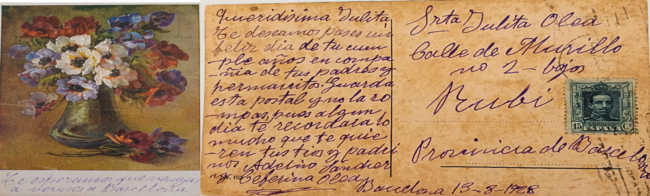 Te esperamos que vengas
a vernos a Barcelona
Queridisima Julita
Te deseamos pases un
feliz dia de tu cum-
ple años en compa-
ñia de tus padres y
hermanitos. Guarda
esta postal y no la ro-
mpas pues algun
dia te recordara lo
mucho que te quie-
ren tus tios y padri
nos Adelino Sanchez
y Ceferina Olea
Barcelona 13-8-1928
Srta Julita Olea
Calle de Murillo
no 2-bajos
Rubi
Provincia de Barcelona
15 ESPAÑA